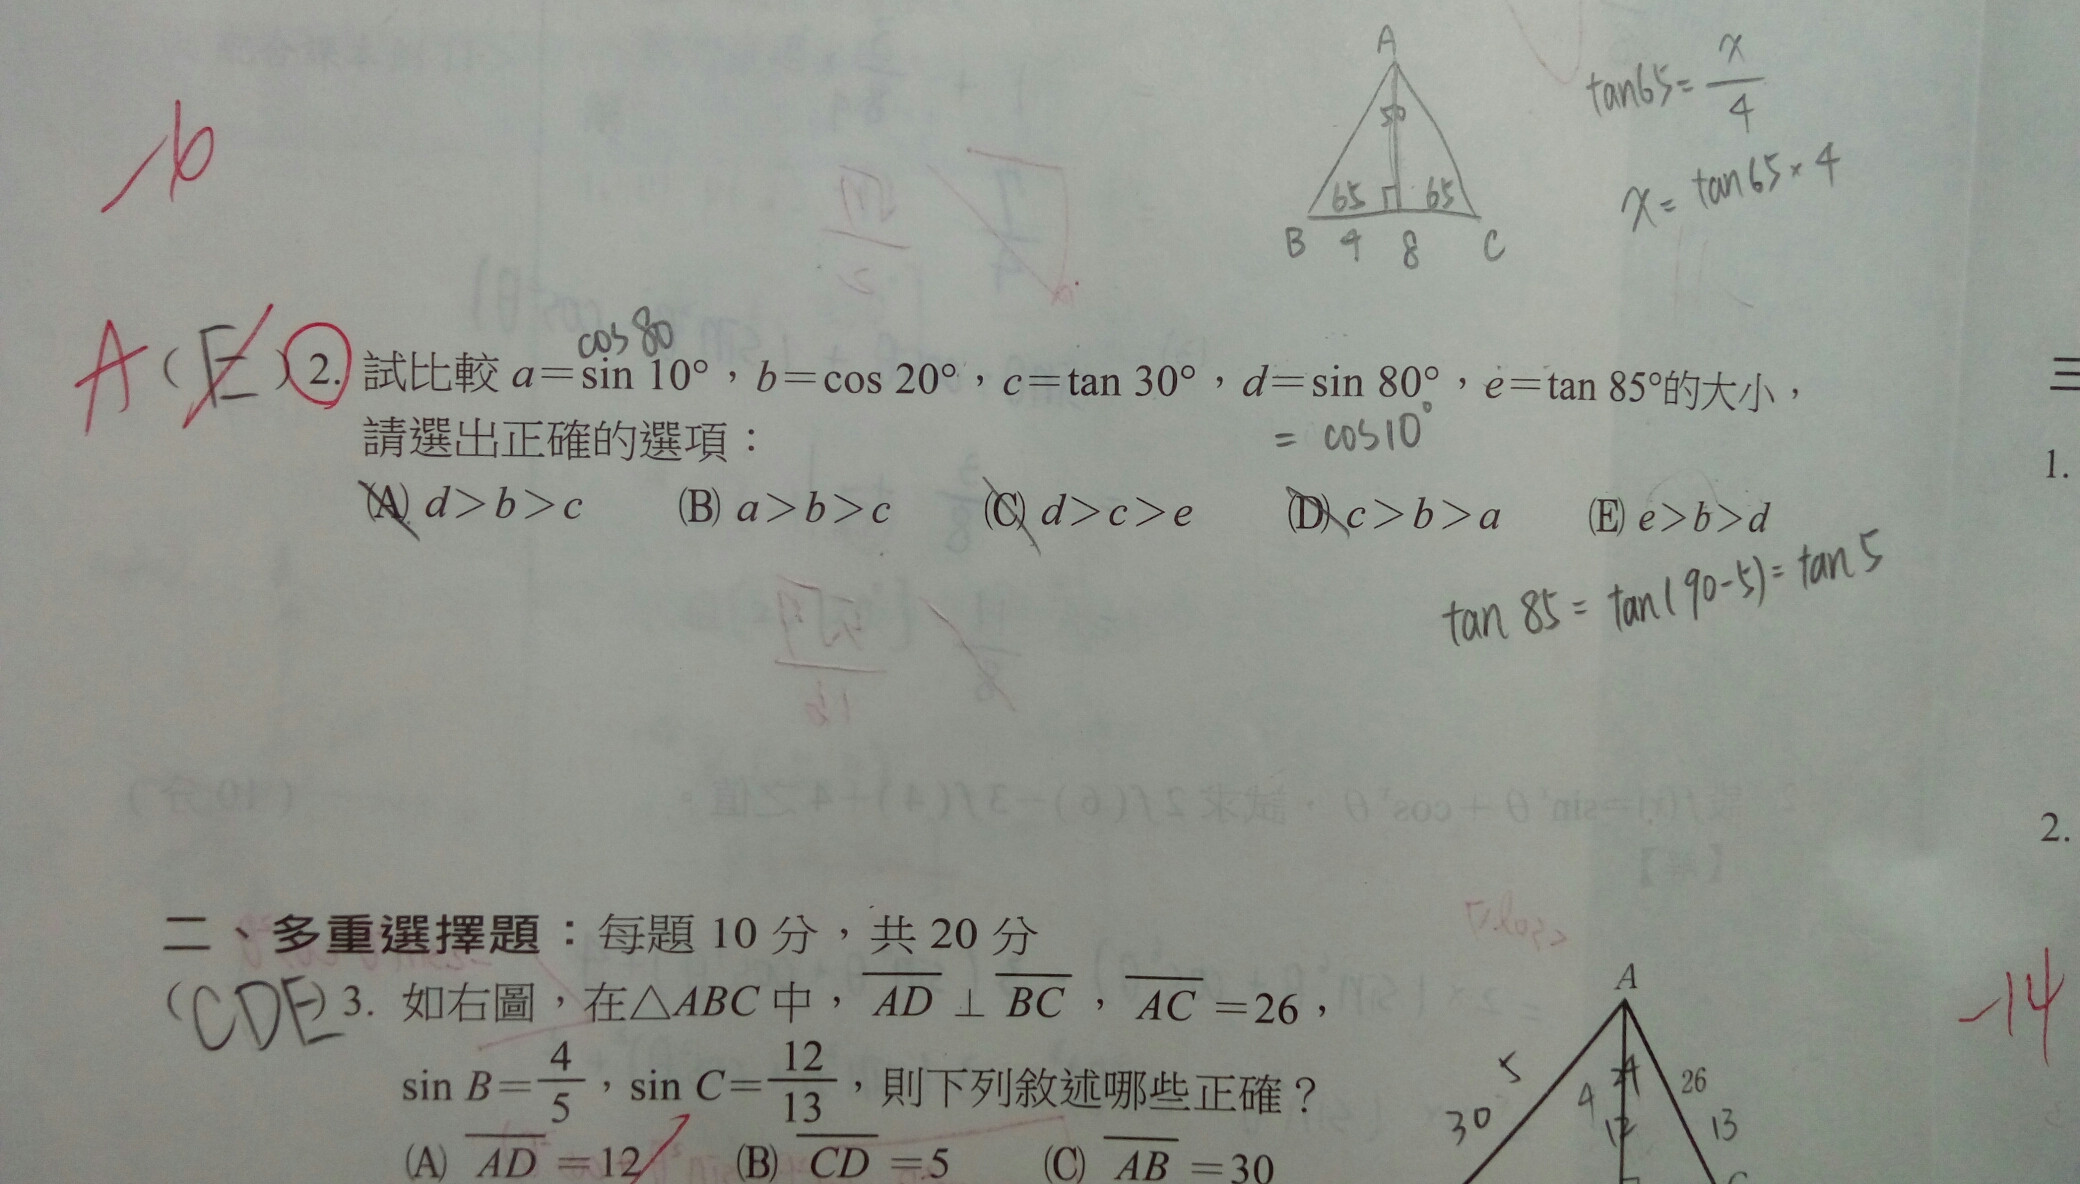 A
50
65 65
B 4 8 C
tan65= x/4
x= tan65×4
b
A (E) 2. 試比較 a=sin 10°，b=cos 20°，c=tan 30°，d=sin 80°，e=tan 85°的大小，
cos 80
請選出正確的選項：
= cos10°
(A) d>b>c (B) a>b>c (C) d>c>e (D) c>b>a (E) e>b>d
tan 85= tan(90-5)= tan5
三
1.
2.
二、多重選擇題：每題 10 分，共 20 分
(CDE) 3. 如右圖，在△ABC 中， AD ⊥ BC ， AC =26，
sin B= 4/5 ，sin C= 12/13 ，則下列敘述哪些正確？
(A) AD =12 (B) CD =5 (C) AB =30
A
5 4 24 26
30 12 13
C
-14